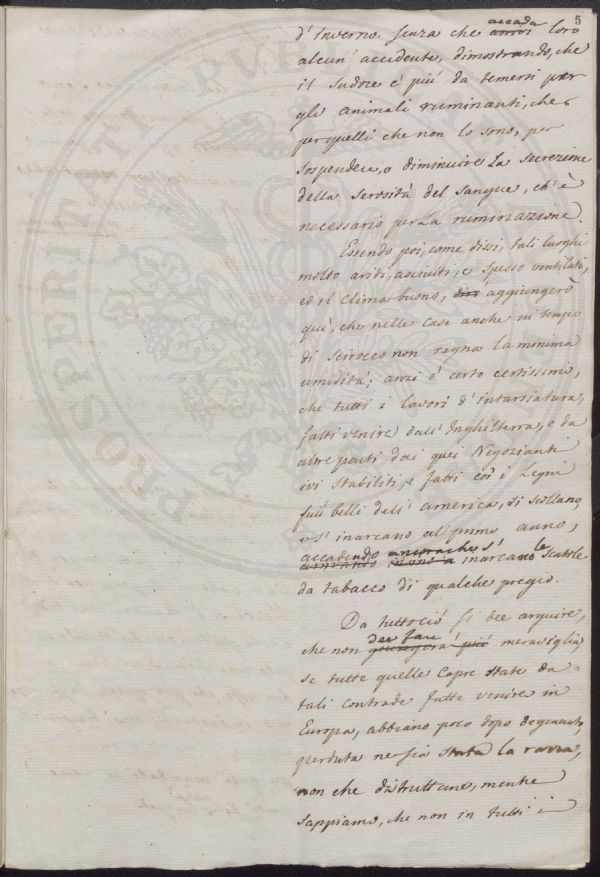 5
d'inverno, senza che accada loro
alcun' accidente, dimostrando, che
il sudore è più da temersi per
gli animali ruminanti, che
per quelli che non lo sono, per
sospendere, o diminuire la secrezione
della serosità del sangue, ch'è
necessario per la ruminazione.
Essendo poi, come dissi, tali luoghi
molto ariti, asciutti, e spesso ventilati,
ed il clima buono, aggiungerò
quì, che nelle case anche in tempo
di scirocco non regna la minima
umidità; anzi è certo certissimo,
che tutti i lavori d'intarsiatura,
fatti venire dall'Inghilterra, e da
altre parti dai quei Negozianti
ivi stabiliti, e fatti coi i Legni
più belli dell'america, si scollano,
e s'inarcano al primo anno,
accadendo s'inarcano le scatole
da tabacco di qualche pregio.
Da tuttociò si dee arguire,
che non dee fare meraviglia
se tutte quelle Capre state da
tali contrade fatte venire in
Europa, abbiano poco dopo degenerato,
perduta ne sia stata la razza,
non che distruttane, mentre
sappiamo, che non in tutti i
PROSPERITATI PUBLICAE